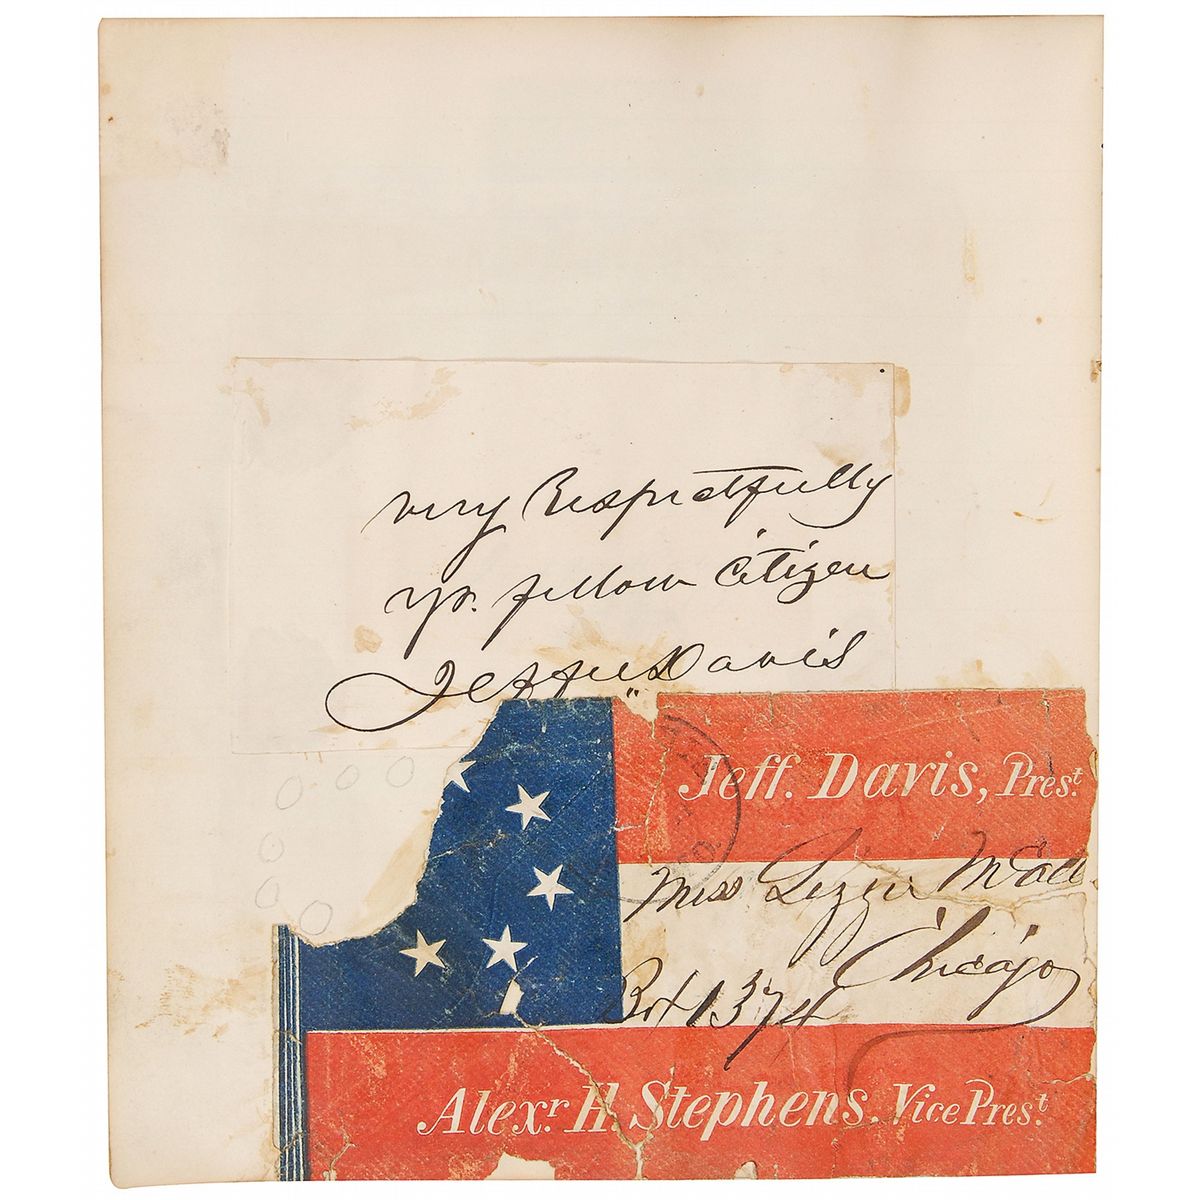 very Respectfully
yr. fellow citizen
Jeffn Davis
Jeff. Davis, Prest.
Miss Lizzie McCall
Chicago
Box 1374
Alexr. H. Stephens. Vice Prest.